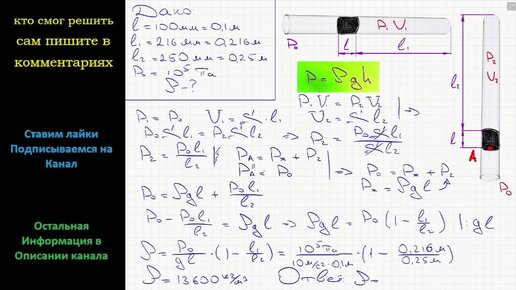 кто смог решить
сам пишите в
комментариях
Ставим лайки
Подписываемся на
Канал
Остальная
Информация в
Описании канала
Дано:
l = 100мм = 0,1м
l₁ = 216мм = 0,216м
l₂ = 250мм = 0,25м
P₀ = 10⁵ Па
ρ - ?
P₀
l
l₁
P₁ V₁
P = ρgh
l₂
l
P₂
V₂
A
P₀
P₁ = P₀ V₁ = S·l₁
P₁V₁ = P₂V₂
V₂ = S·l₂
P₀ S l₁ = P₂ S l₂ ⇒ P₂ = P₀ S l₁ / S l₂
P₂ = P₀l₁ / l₂
P_A = P_ж + P₂
P_A = P₀
⇒ P₀ = P_ж + P₂
P_ж = ρgl
P₀ = ρgl + P₀l₁ / l₂
P₀ - P₀l₁ / l₂ = ρgl ⇒ ρgl = P₀ (1 - l₁/l₂) |: gl
ρ = P₀/gl · (1 - l₁/l₂) = 10⁵Па / 10м/с²·0,1м · (1 - 0,216м / 0,25м)
ρ = 13600 кг/м³ Ответ: ρ -